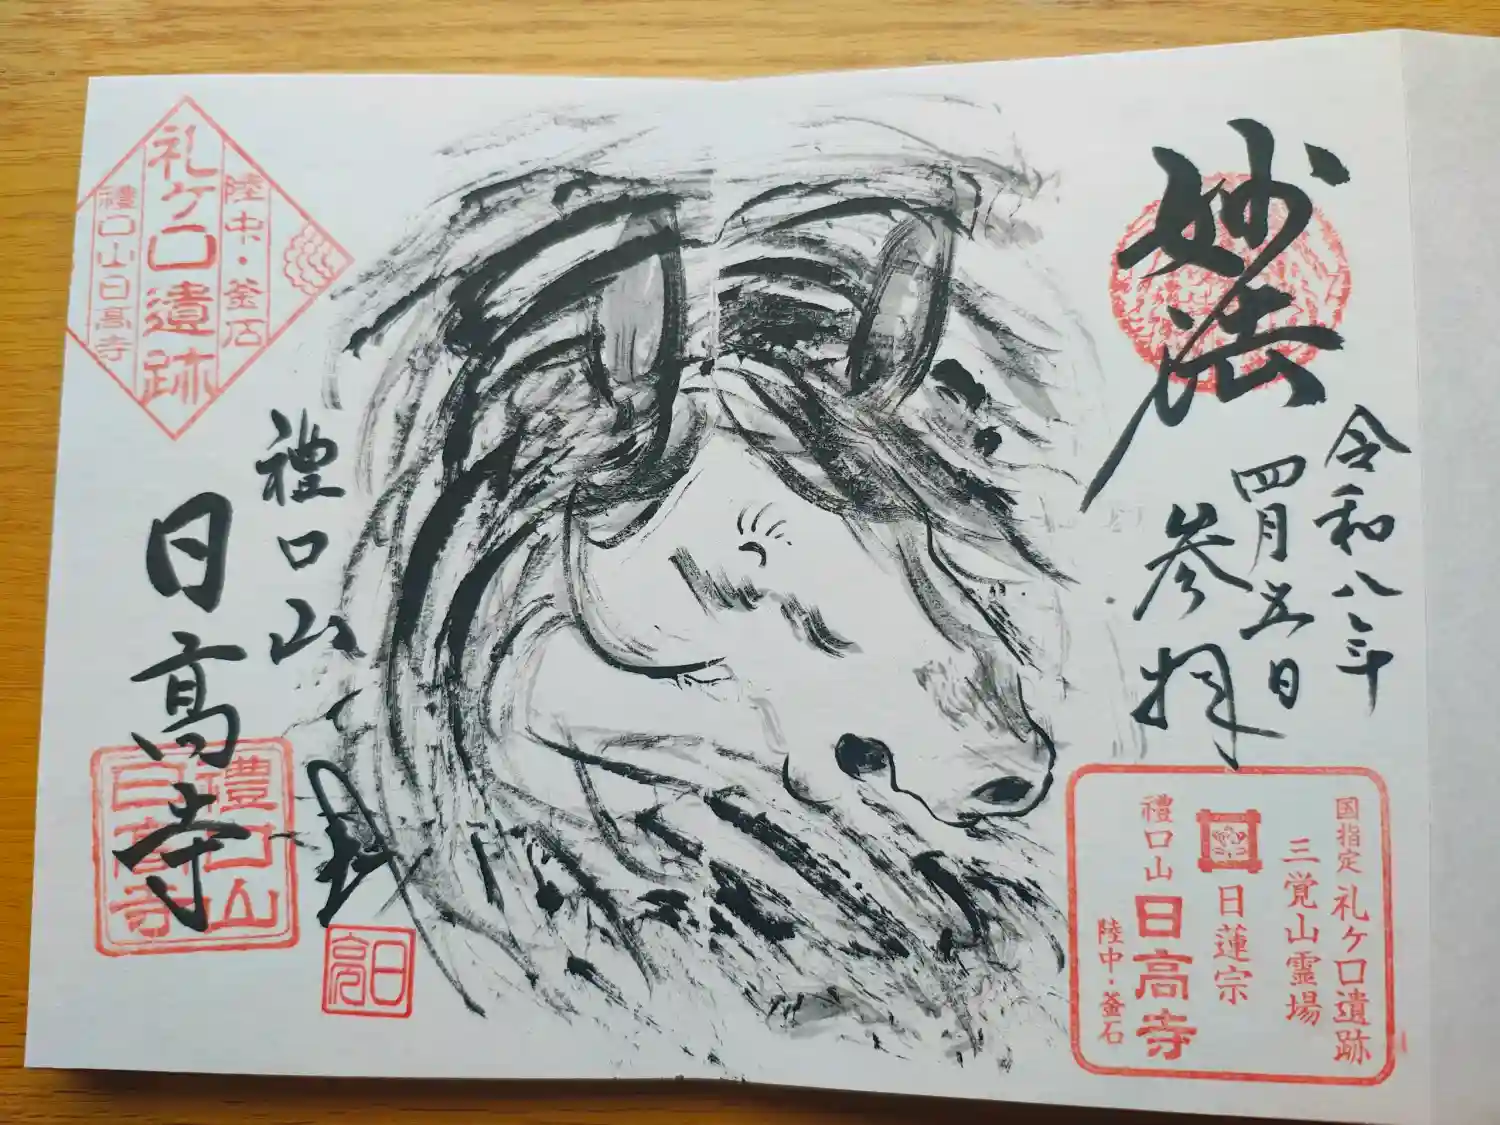 妙法
令和八年
四月五日
参拝
国指定 礼ケ口遺跡
三覚山霊場
日蓮宗
禮口山 日高寺
陸中・釜石
陸中・釜石
礼ケ口遺跡
禮口山日高寺
禮口山
日高寺
禮口山
日高寺
日高